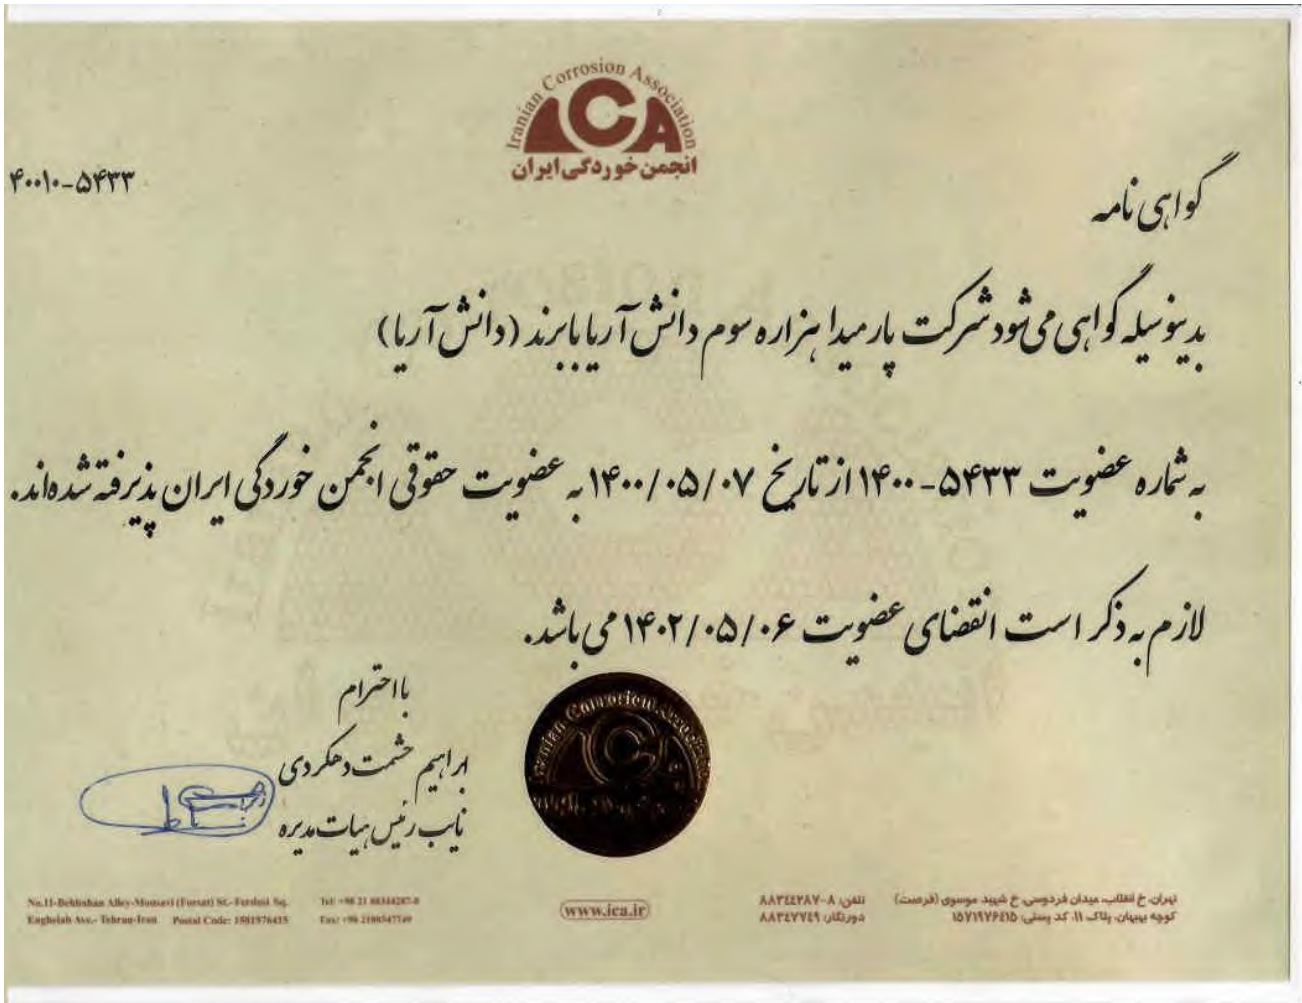 Iranian Corrosion Association
ICA
انجمن خوردگی ایران
۴۰۰۱۰-۵۴۳۳
گواهی نامه
بدینوسیله گواهی می شود شرکت پارمیدا هزاره سوم دانش آریا با برند (دانش آریا)
به شماره عضویت ۵۴۳۳-۱۴۰۰ از تاریخ ۱۴۰۰/۰۵/۰۷ به عضویت حقوقی انجمن خوردگی ایران پذیرفته شده اند.
لازم به ذکر است انقضای عضویت ۱۴۰۲/۰۵/۰۶ می باشد.
با احترام
ابراهیم حشمت دهکردی
نایب رئیس هیات مدیره
Iranian Corrosion Association
ICA
تهران، خ انقلاب، میدان فردوسی، خ شهید موسوی (فرصت)
کوچه بهبهان، پلاک ۱۱، کد پستی: ۱۵۷۱۹۷۶۴۱۵
تلفن: ۸-۸۸۳۴۴۲۸۷
دورنگار: ۸۸۳۴۷۷۴۹
www.ica.ir
No.11-Behbahan Alley-Mousavi (Forsat) St.-Ferdosi Sq.
Enghelab Ave.- Tehran-Iran Postal Code: 1581976415
Tel: +98 21 88344287-8
Fax: +98 2188347749